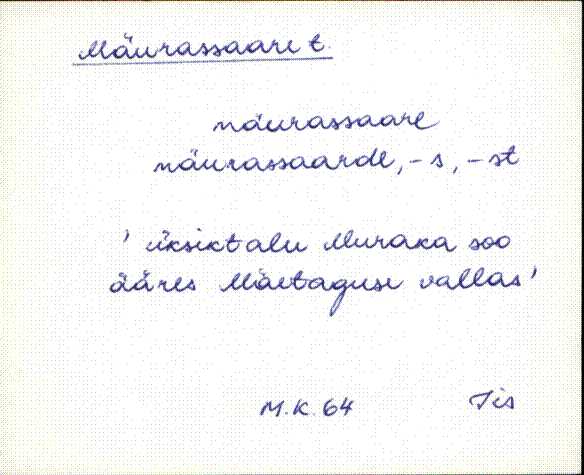 Mäurassaare t.
mäurassaare
mäurassaarde, -s, -st
' üksiktalu Muraka soo
ääres Mäetaguse vallas'
M.K. 64 Iis